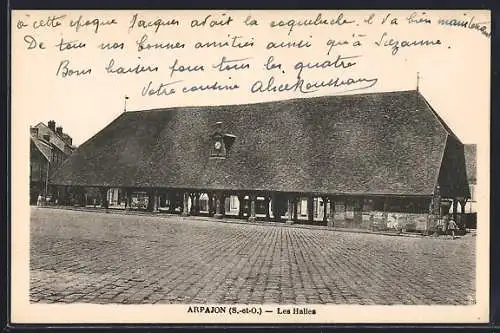 à cette époque Jacques avait la coqueluche. il va bien maintenant
De tous nos bonnes amitiés ainsi qu'à Suzanne.
Bons baisers pour vous quatre
Votre cousine Alice Rousseau
ARPAJON (S.-et-O.) — Les Halles